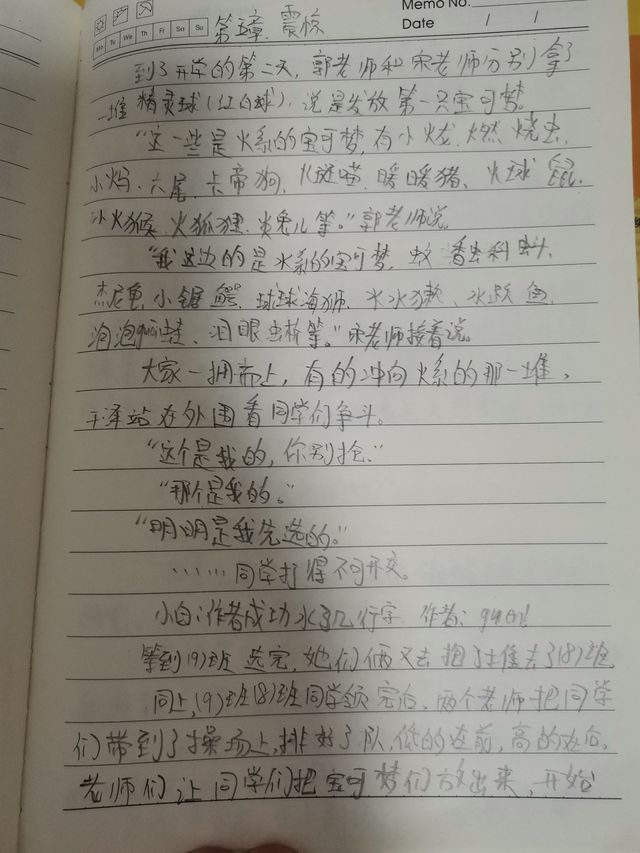 Memo No.
Mo Tu We Th Fr Sa Su
Date / /
第五章 震惊
到了开学的第二天，郭老师和宋老师分别拿了
一堆精灵球(红白球)，说是发放第一只宝可梦。
“这一些是火系的宝可梦，有小火龙、燃烧虫、
小妈、六尾、卡帝狗、火斑喵、暖暖猪、火球鼠、
小火猴、火狐狸、炎兔儿等。”郭老师说
“我这边的是水系的宝可梦，蚊香虫科蚪、
杰尼龟、小锯鳄、球球海狮、水水獭、水跃鱼、
泡泡蛙、泪眼蜥等。”宋老师接着说。
大家一拥而上，有的冲向火系的那一堆，
王泽站在外围看同学们争斗。
“这个是我的，你别抢。”
“那个是我的。”
“明明是我先选的。”
……同学打得不可开交。
小白：作者成功水了几行字. 作者：
等到(9)班选完，她们俩又去抱了土堆去了(8)班
同上，(9)班(8)班同学领完后，两个老师把同学
们带到了操场上，排好了队，低的在前，高的在后，
老师们让同学们把宝可梦们放出来，开始